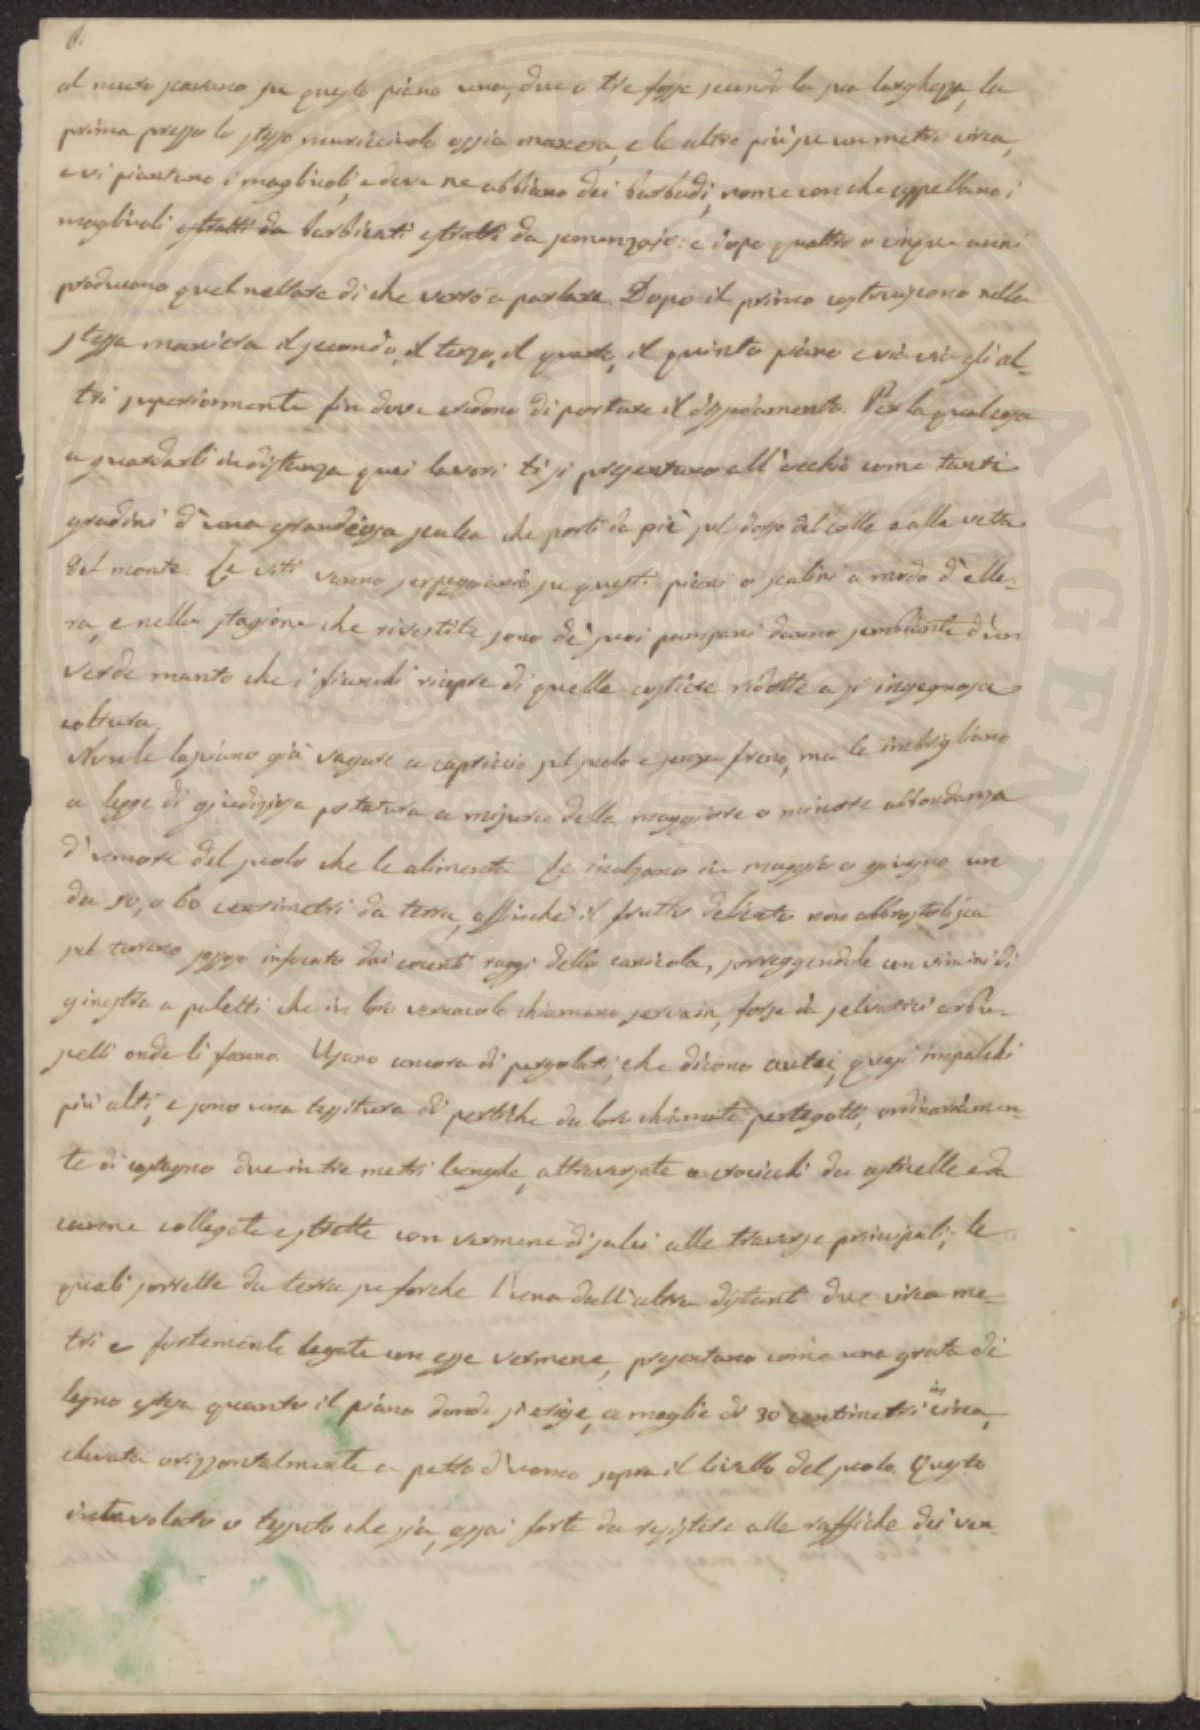 6.
al muro scavano su questo piano una, due o tre fosse secondo la sua larghezza, la
prima presso lo stesso muricciuolo ossia macera, e le altre più su un metro circa,
e vi piantano i magliuoli, e dove ne abbiano dei barbadi, nome con che appellano i
magliuoli estratti da barbicati estratti da semenzajo: e dopo quattro o cinque anni
producono quel nettare di che verrò a parlare. Dopo il primo costruiscono nella
stessa maniera il secondo, il terzo, il quarto, il quinto piano e via via gli al-
tri superiormente fin dove credono di portare il dissodamento. Per la qual cosa
a guardarli in distanza quei lavori ti si presentano all'occhio come tanti
gradini d'una grandiosa scalea che porti da piè sul dosso del colle e alla vetta
del monte. Le viti vanno serpeggiando su questi piani o scalini a modo d'elle-
ra, e nella stagione che rivestite sono de' suoi pampani danno sembiante d'un
verde manto che i fianchi ricopre di quelle costiere ridotte a sì ingegnosa
coltura.
Non le lasciano già vagare a capriccio sul suolo e senza freno, ma le imbrigliano
a legge di giudiziosa potatura a misura della maggiore o minore abbondanza
d'umore del suolo che le alimenta. Le inalzano in maggio o giugno un
da 50, o 60 centimetri da terra, affinchè il frutto delicato non abbrustolisca
sul terreno spesso infocato dai cocenti raggi della canicola, sorreggendole con vimini di
ginestra a paletti che in loro vernacolo chiamano servain, forse da selvatici arbu-
scelli onde li fanno. Usano ancora di pergolati, che dicono autei, quasi impalchi
più alti, e sono una tessitura di pertiche da loro chiamate pertegatti, ordinariamen-
te di castagno due in tre metri lunghe, attraversate a crocicchi da asticelle e da
canne collegate e strette con vermene di salci alle traverse principali; le
quali sorrette da terra su forche l'una dall'altra distanti due circa me-
tri e fortemente legate con esse vermene, presentano come una grata di
legno estesa quanto il piano donde si erige, a maglie di 30 centimetri in circa,
elevata orizzontalmente a petto d'uomo sopra il livello del suolo. Questo
intavolato o tessuto che sia, assai forte da resistere alle raffiche dei ven-